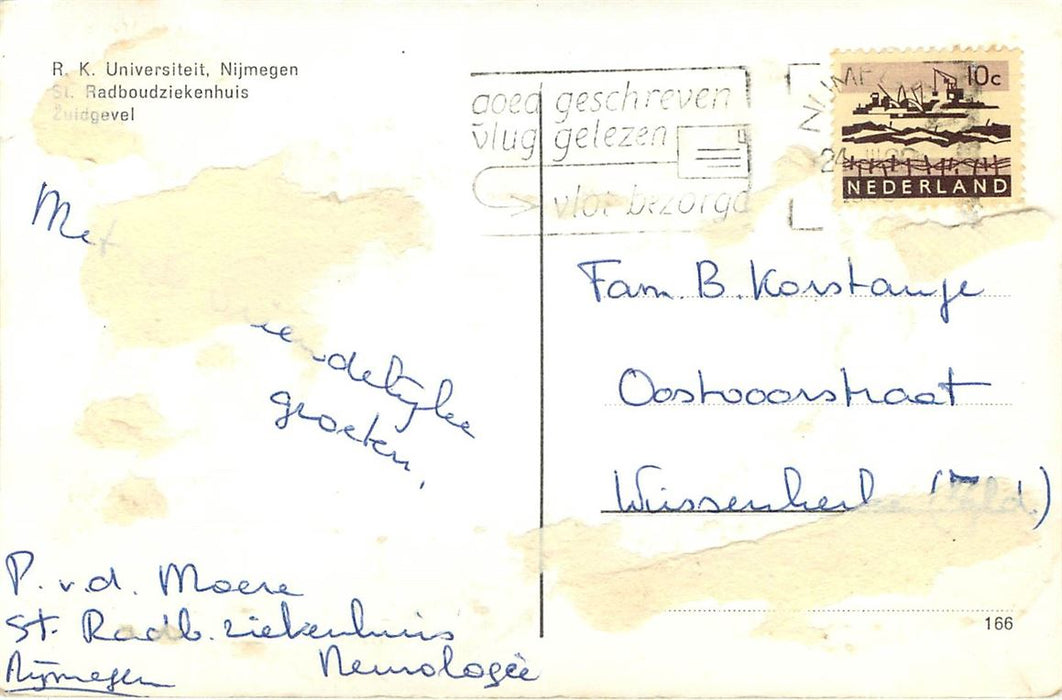 R. K. Universiteit, Nijmegen
St. Radboudziekenhuis
Zuidgevel
goed geschreven
vlug gelezen
vlot bezorgd
NIJME
24
10c
NEDERLAND
Met
vriendelijke
groeten,
P. v.d. Moere
St. Radb. ziekenhuis
Neurologie
Nijmegen
Fam. B. Korstanje
Oostvoorstraat
Wissenkerke (Zld.)
166